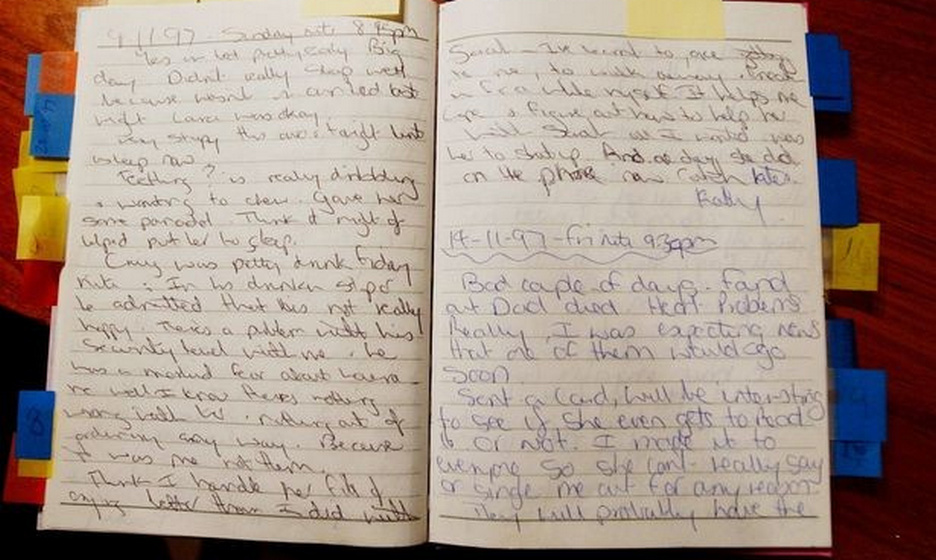 9-11-97. Sunday nite 8 45pm
Yes in bed pretty early Big
day. Didn't really sleep well
because wasn't in our bed last
night Laura was okay.
very sleepy
asleep now
Teething? is really dribbling
& wanting to chew. Gave her
some panadol. Think it might of
helped put her to sleep.
Craig was pretty drunk Friday
nite. In his drunken
he admitted that he's not really
happy. There's a problem with his
security level with me. he
has a fear about Laura
me well I know there's nothing
wrong with her. nothing out of
ordinary any way. Because
it was me not them.
Think I handle her fits of
crying better than I did with
Sarah - I've learnt to
to me, to walk away. Break
for a while myself It helps me
cope & figure out how to help her
With Sarah all I wanted was
her to shut up. And one day she did
on the phone now Catch later.
Kathy
14-11-97-Fri nite 930pm
Bad couple of days. Found
out Dad died Heart Problems
Really, I was expecting news
that one of them would go
Soon.
Sent a Card, will be interesting
to see if she even gets to read
it or not. I made it to
everyone so she can't really say
or single me out for any reason
They will probably have the